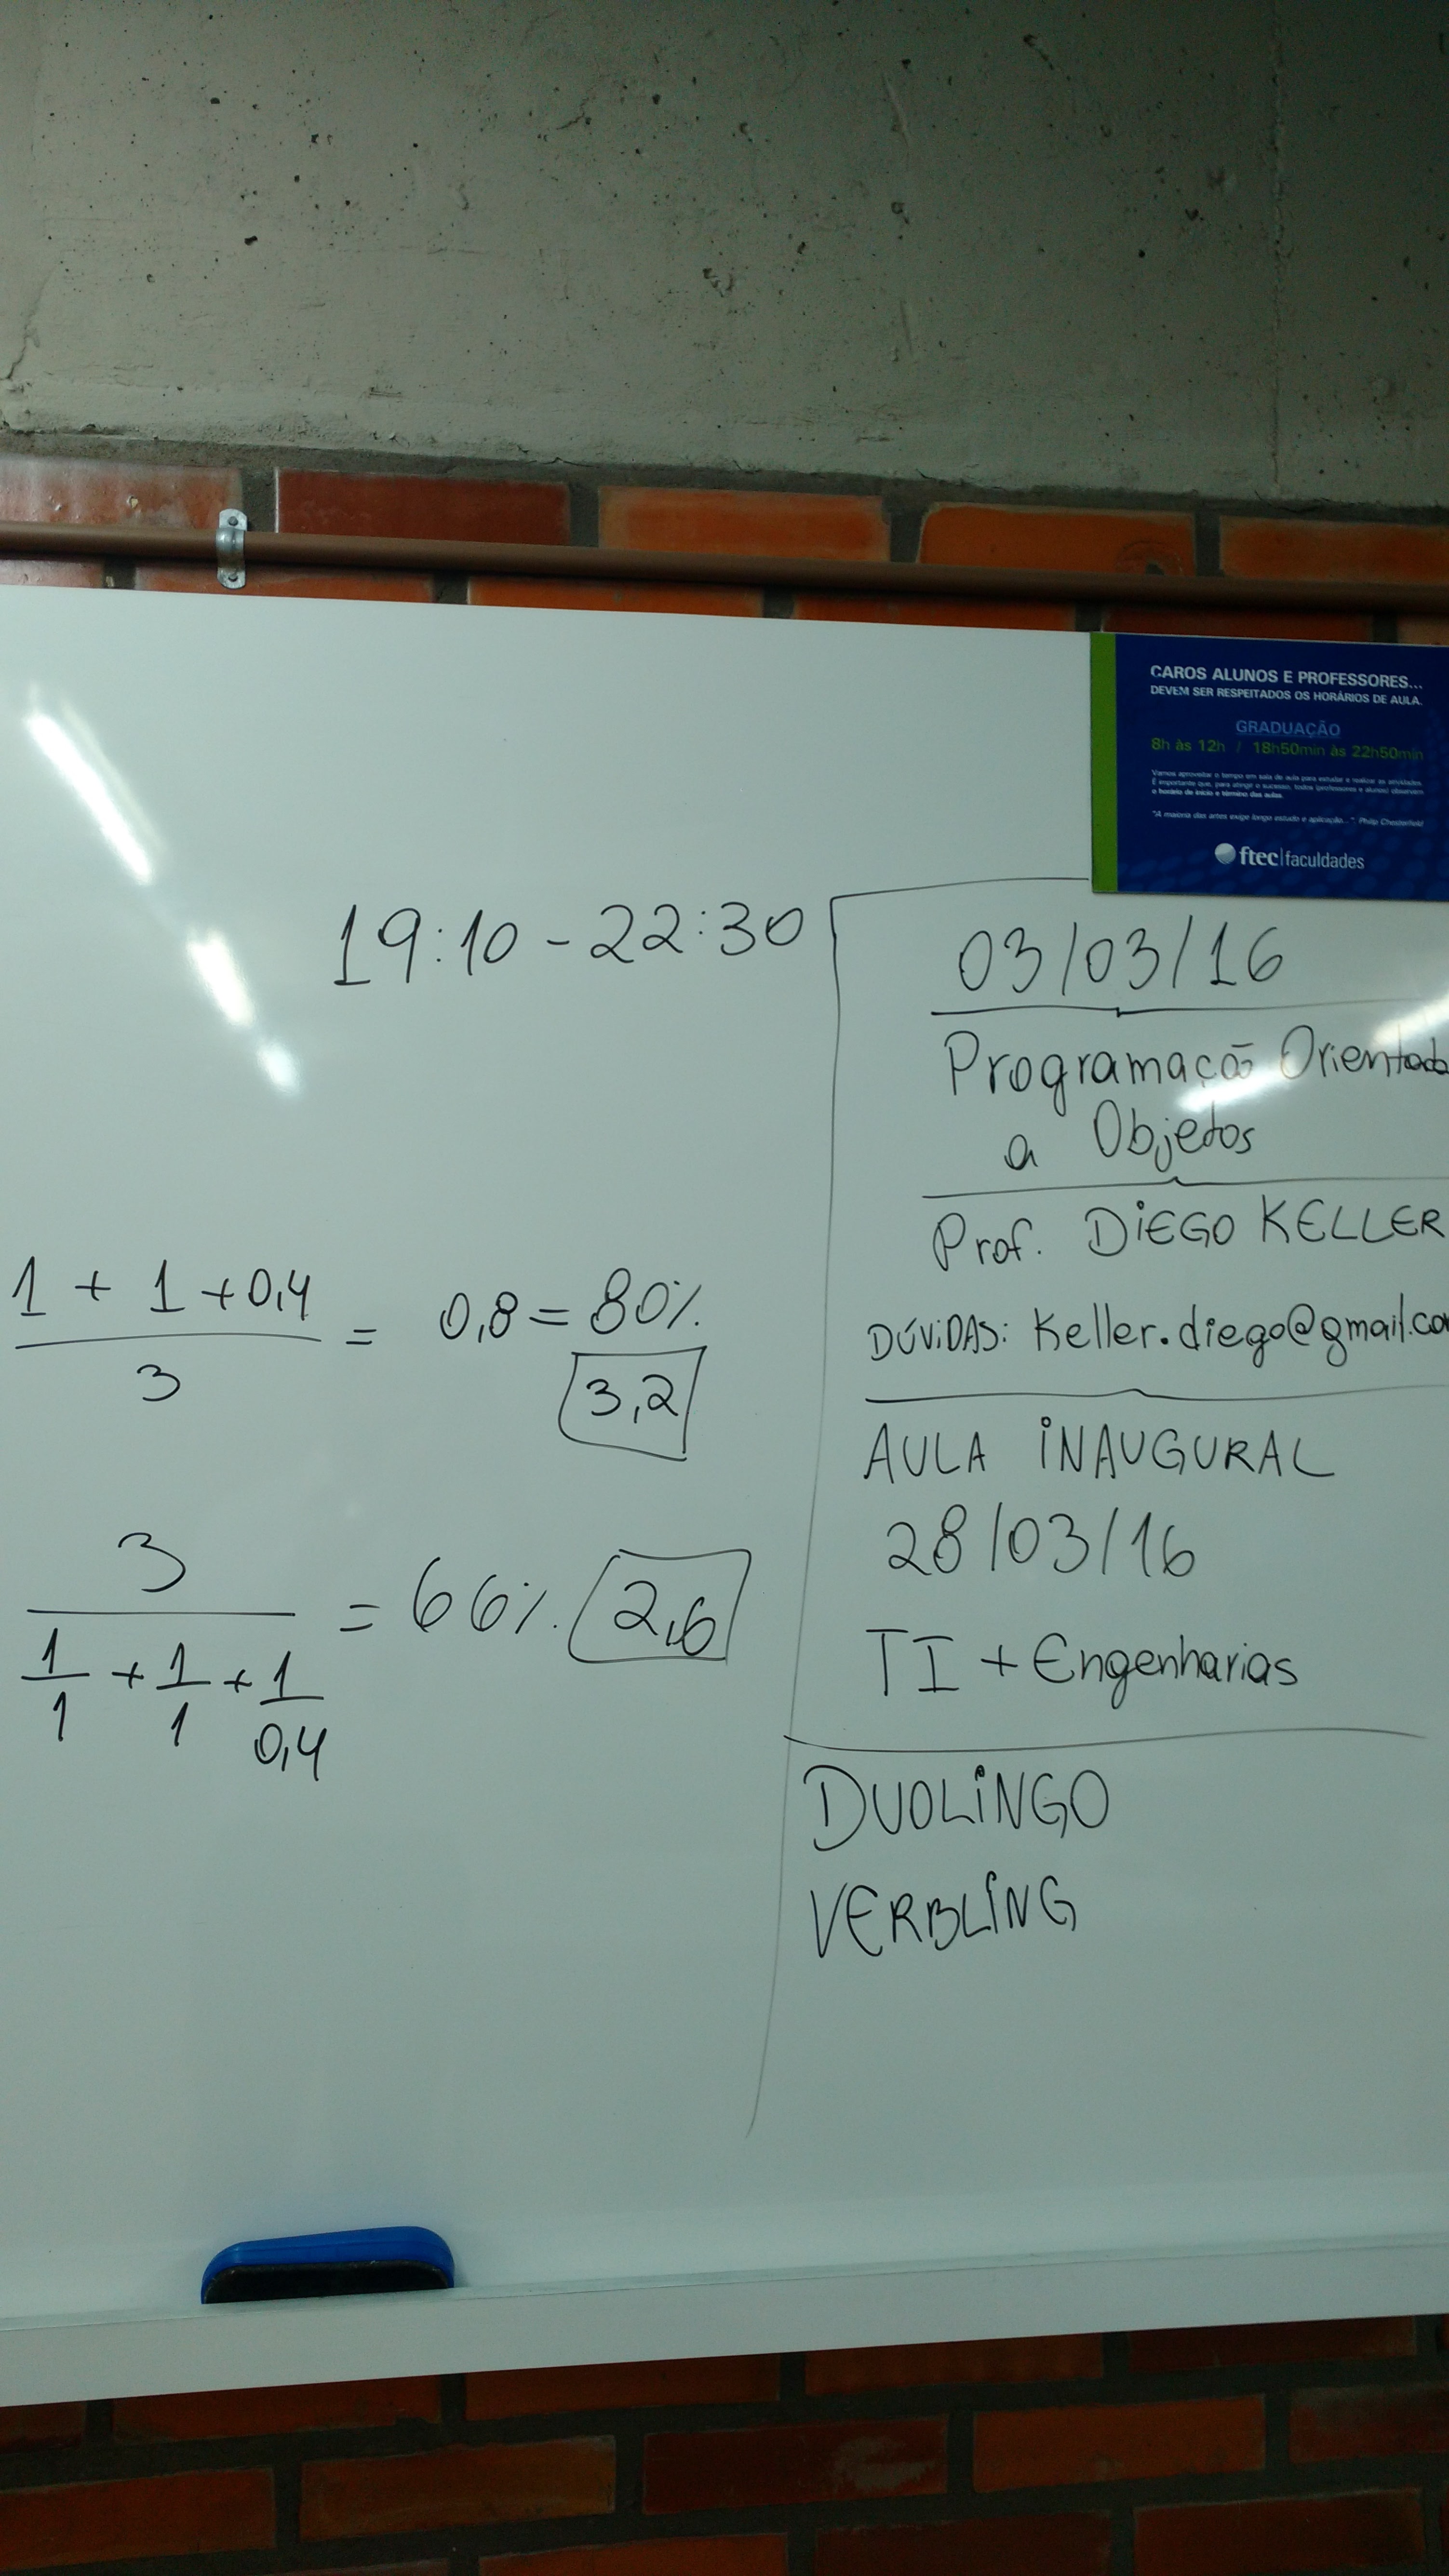 CAROS ALUNOS E PROFESSORES...
DEVEM SER RESPEITADOS OS HORÁRIOS DE AULA.
GRADUAÇÃO
8h às 12h / 18h50min às 22h50min
Vamos aproveitar o tempo em sala de aula para estudar e realizar as atividades.
É importante que, para atingir o sucesso, todos (professores e alunos) observem
o horário de início e término das aulas.
"A maioria das artes exige longo estudo e aplicação..." Philip Chesterfield
ftec|faculdades
19:10 - 22:30
1 + 1 + 0,4
3
= 0,8 = 80%
3,2
3
1/1 + 1/1 + 1/0,4
= 66% 2,6
03/03/16
Programação Orientada
a Objetos
Prof. DiEGO KELLER
DÚViDAS: Keller.diego@gmail.co
AULA iNAUGURAL
28/03/16
TI + Engenharias
DUOLiNGO
VERBLiNG